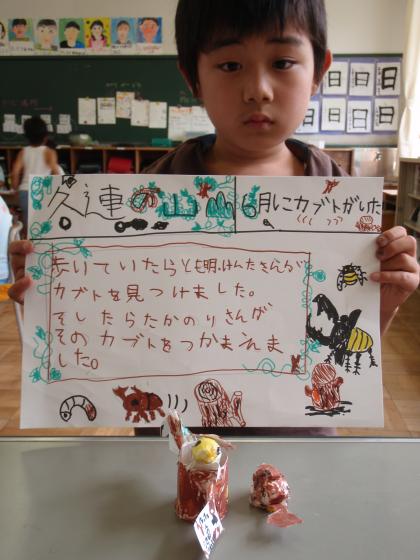 久連の山
6月にカブトがいた
歩いていたらとも明、けんたさんが
カブトを見つけました。
そしたらたかのりさんが
そのカブトをつかまえま
した。
日 日 日 日